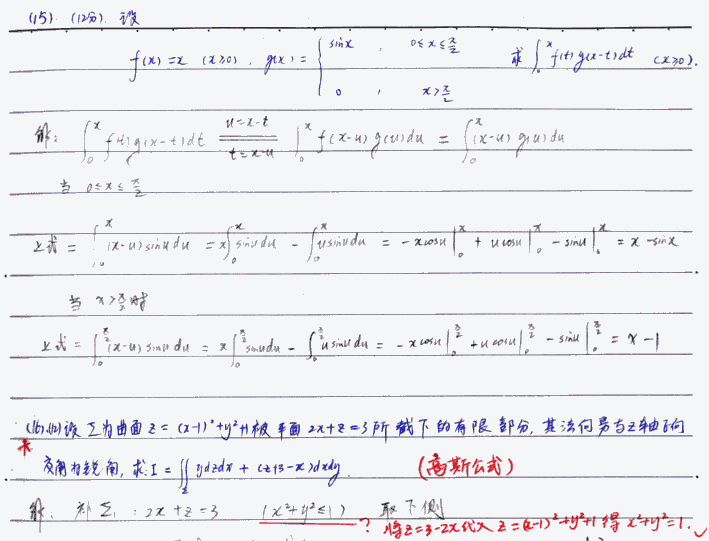 (15). (12分). 设
f(x)=x (x≥0), g(x)={ sinx, 0≤x≤π/2
0, x>π/2
求 ∫₀ˣ f(t)g(x-t)dt (x≥0).
解: ∫₀ˣ f(t)g(x-t)dt u=x-t t=x-u ∫₀ˣ f(x-u)g(u)du = ∫₀ˣ (x-u)g(u)du
当 0≤x≤π/2
上式 = ∫₀ˣ (x-u)sinudu = x∫₀ˣ sinudu - ∫₀ˣ usinudu = -xcosu|₀ˣ + ucosu|₀ˣ - sinu|₀ˣ = x-sinx
当 x>π/2时
上式 = ∫₀^(π/2) (x-u)sinudu = x∫₀^(π/2) sinudu - ∫₀^(π/2) usinudu = -xcosu|₀^(π/2) + ucosu|₀^(π/2) - sinu|₀^(π/2) = x-1
设Σ为曲面 z=(x-1)²+y²+1被平面 2x+z=3所截下的有限部分, 其法向量与z轴正向
* 夹角为锐角, 求: I=∬_Σ ydzdx + (z+3-x)dxdy. (高斯公式)
解: 补Σ₁: 2x+z=3 (x²+y²≤1) 取下侧
? 将z=3-2x代入 z=(x-1)²+y²+1 得 x²+y²=1. ✓